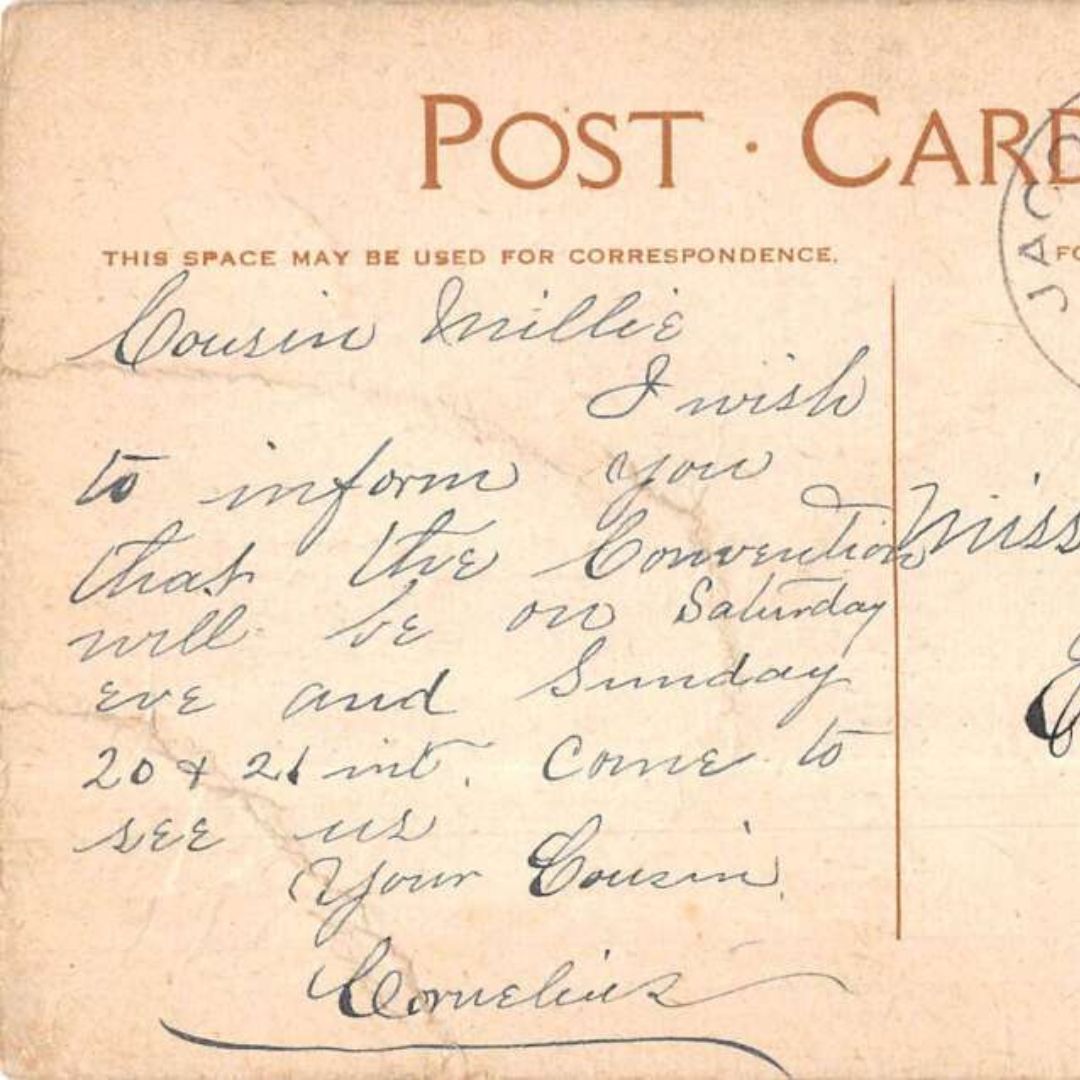 POST · CARD
THIS SPACE MAY BE USED FOR CORRESPONDENCE.
FO
JAC
Cousin Millie
I wish
to inform you
that the Convention
will be on Saturday
eve and Sunday
20 & 21 int. Come to
see us
Your Cousin.
Cornelius
Miss